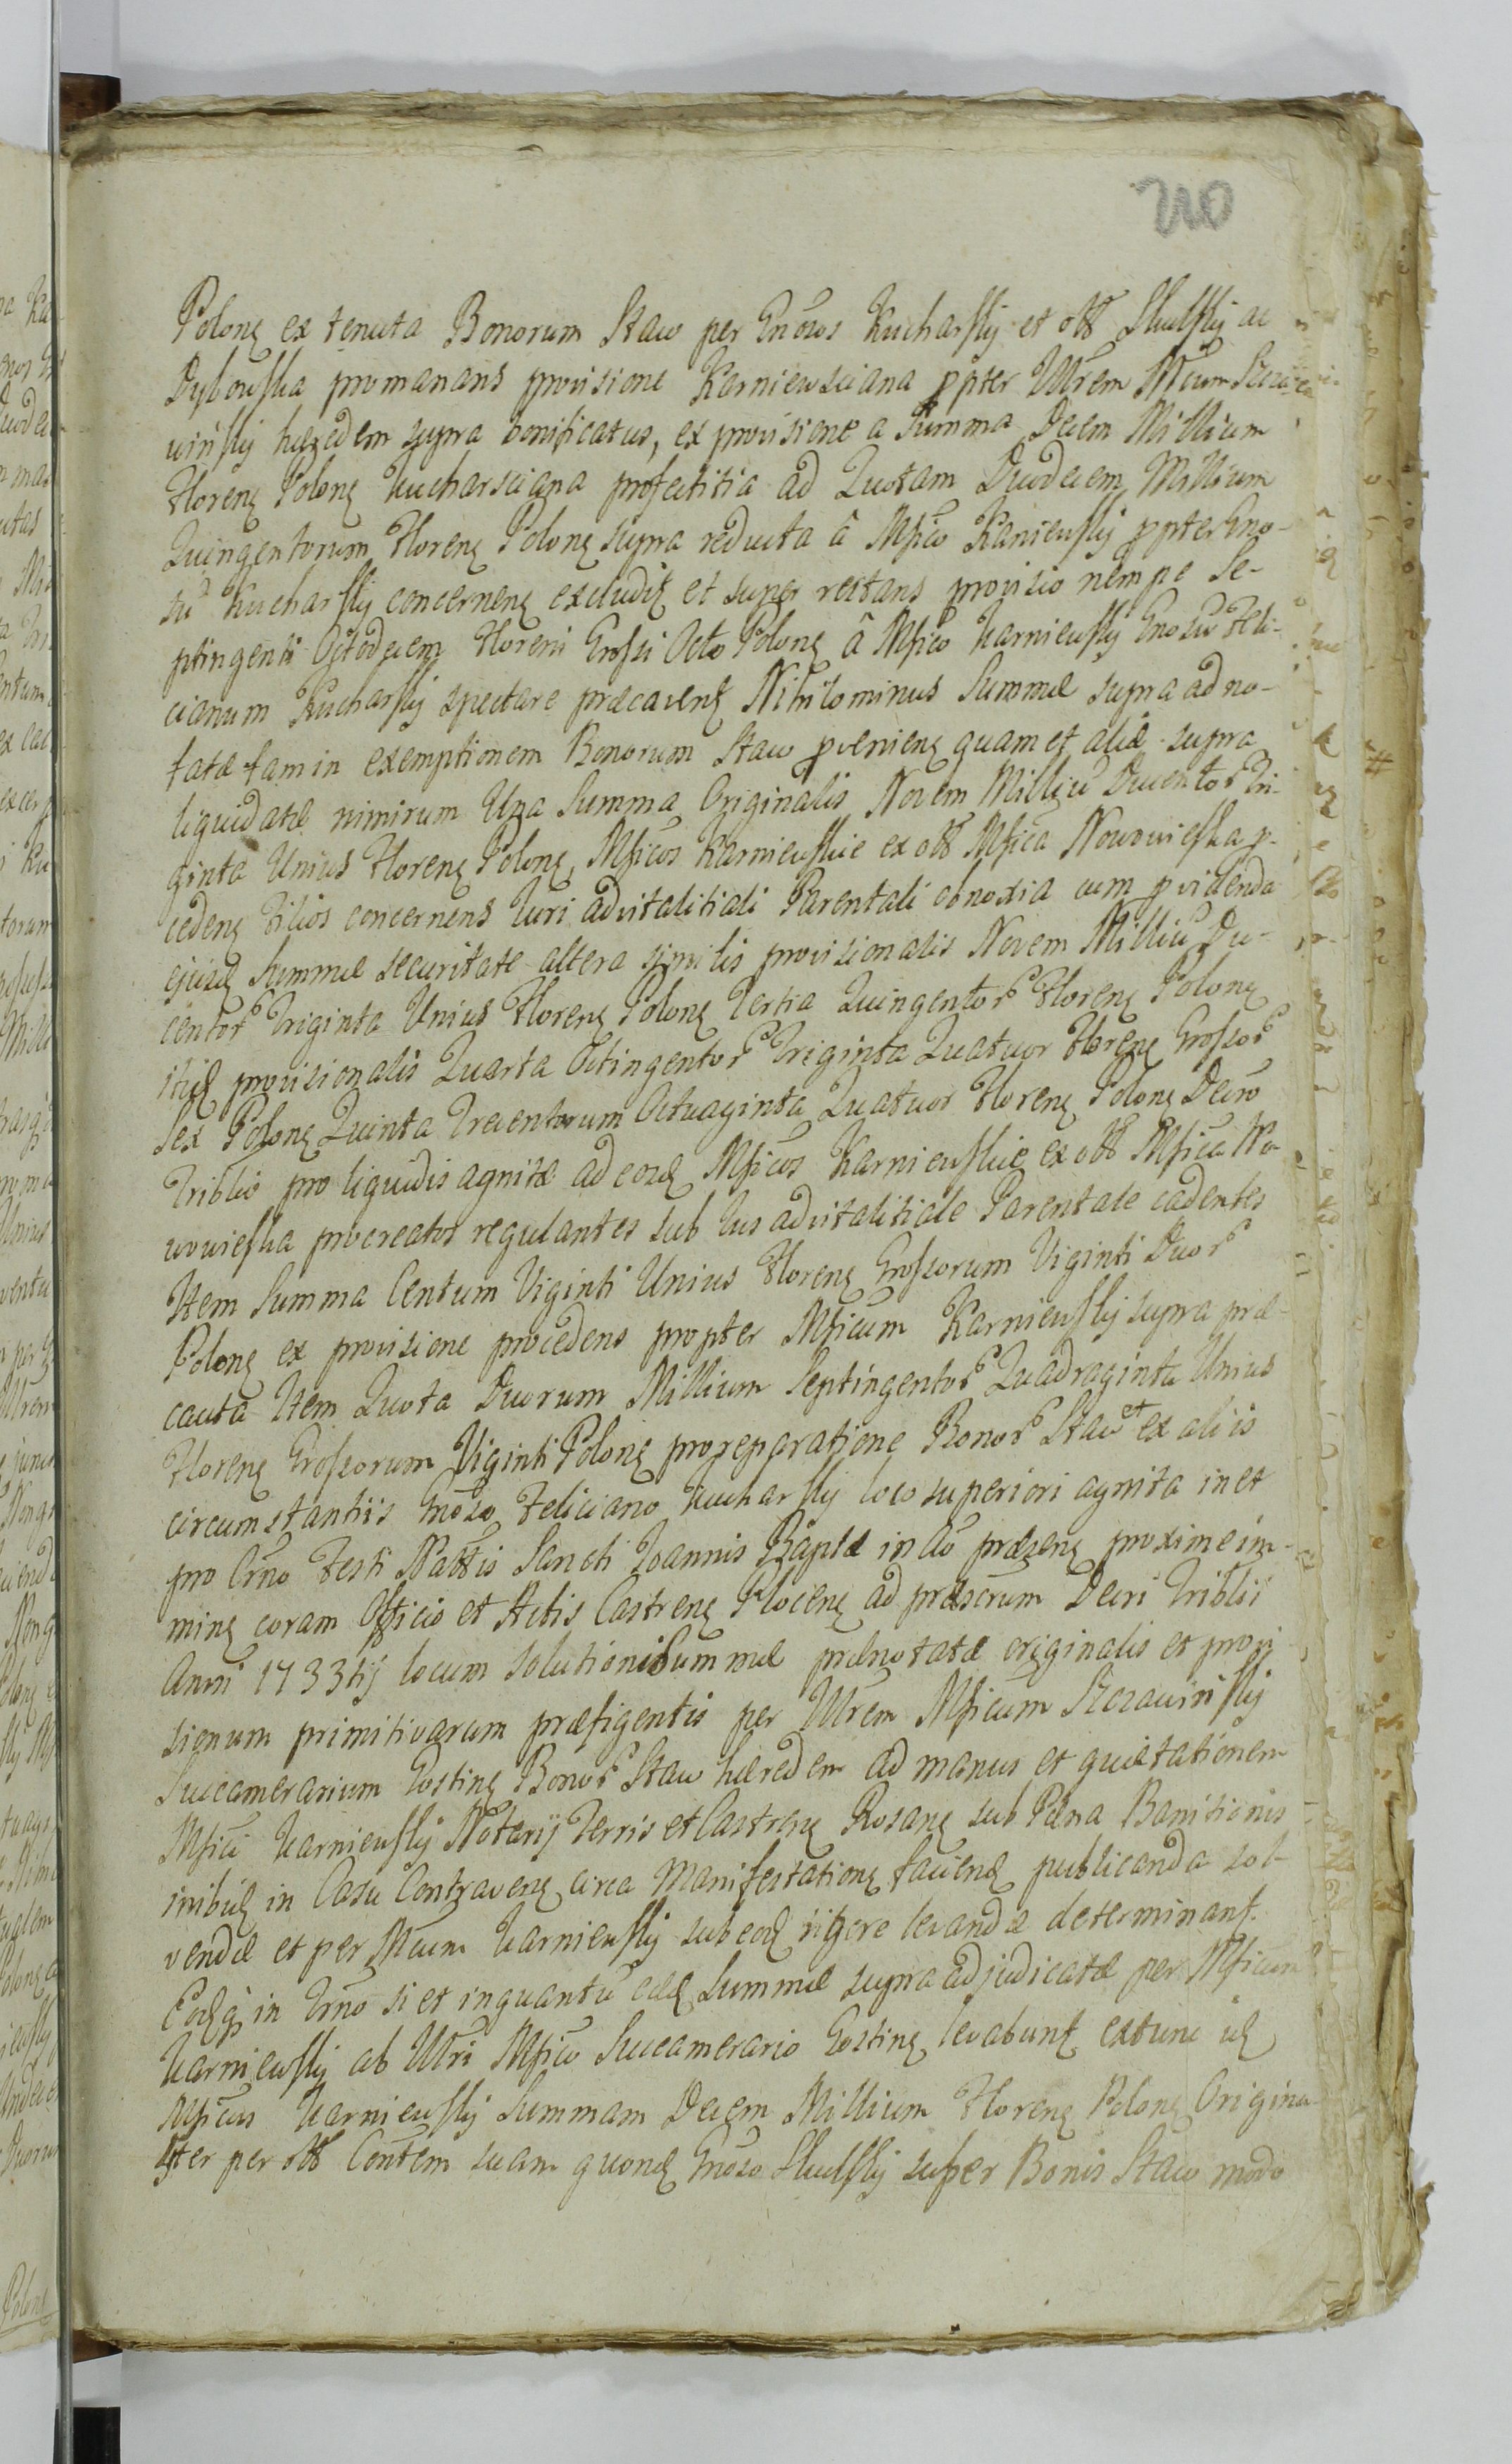 210
Polonę ex tenuta Bonorum Staw per Gnosos Kucharskÿ et olt Skulskÿ ac
Dybowska promanans provisione Karniewsciana ppter Mrem Mcum Szcza-
winskÿ hæredem supra bonificatus, ex provisione a Summa Decem Millium
Florenę Polonę Kucharsciana profectitia ad Quotam Duodecem Millium
Quingentorum Florenę Polonę supra reducta â Mfico Karniewskÿ ppter Gno-
su Kucharskÿ concernenę excludiť et super restans provisio nempe Se-
ptingenti Octodecem Floreni Grossi Octo Polonę â Mfico Karniewskÿ Gnosu Feli-
cianum Kucharskÿ spectare præcavenę Nihilominus Summæ supra adno-
tatæ tam in exemptionem Bonorum Staw pvenienę quam et aliæ supra
liquidatæ nimirum Una Summa Originalis Novem Milliu Ducentor Tri-
ginta Unius Florenę Polonę, Mficos Karniewskie ex olt Mfica Nowowieska p-
cedenę Filios concernens Iuri advitalitiali Parentali obnoxia cum pvidenda
ejusdę Summæ securitate altera similis provisionalis Novem Milliu Du-
centor Triginta Unius Florenę Polonę Tertia Quingentor Florenę Polonę
itidę provisionalis Quarta Octingentor Triginta Quatuor Florenę Grossor
Sex Polonę Quinta Trecentorum Octuaginta Quatuor Florenę Polonę Decro
Triblis pro liquidis agnitæ ad eosdę Mficos Karniewskie ex olt Mfica No-
wowieska procreatos regulantes sub Ius advitalitiale Parentale cadentes
Item Summa Centum Viginti Unius Florenę Grossorum Viginti Duor
Polonę ex provisione procedens propter Mficum Karniewskÿ supra præ-
cauta Item Quota Duorum Millium Septingentor Quadraginta Unius
Florenę Grossorum Viginti Polonę pro reparatione Bonor Staw et ex aliis
circumstantiis Gnoso Feliciano Kucharskÿ loco superiori agnita in et
pro Crno Festi Nattis Sancti Ioannis Baptæ in Ao præsenę proxime im-
minę coram Officio et Actis Castrenę Plocenę ad præscrum Decri Triblis
Anni 1733tÿ locum solutionis Summæ prænotatæ originalis et provi
sionum primitivarum præfigentis per Mrem Mficum Szczawinskÿ
Succamerarium Gostinę Bonor Staw hæredem ad manus et quietationem
Mfici Karniewskÿ Notarÿ Terris et Castrenę Rosanę sub Pæna Banitionis
inibidę in Casu Contravenę circa Manifestationę faciendę publicanda sol-
vendæ et per Mcum Karniewskÿ sub eodę rigore levandæ determinant.
Eodęq in Trno si et inquantu eædę Summæ supra adjudicatæ per Mficum
Karniewskÿ ab Mri Mfico Succamerario Gostinę levabunt extunc idę
Mficus Karniewskÿ Summam Decem Millium Florenę Polonę Origina-
liter per olt Contem suam quondę Gnoso Skulskÿ super Bonis Staw modo